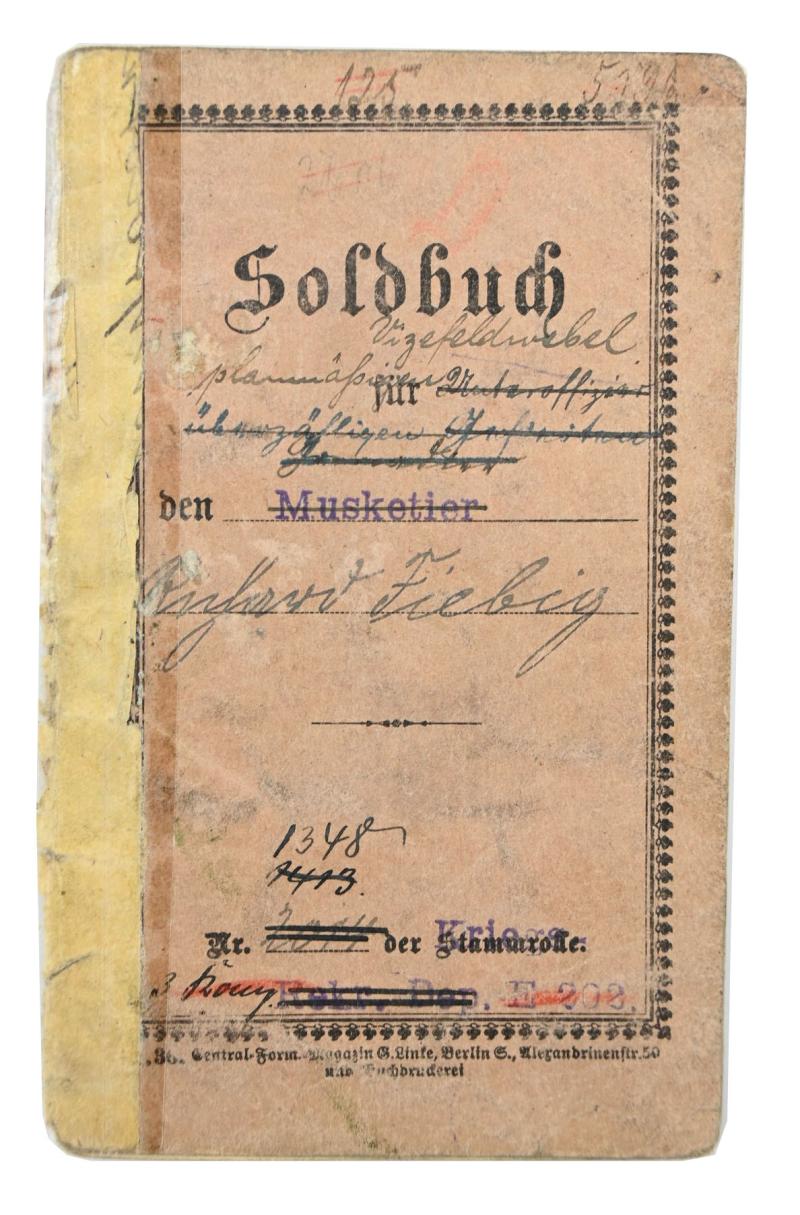 125
Soldbuch
Vizefeldwebel
planmäßigen für Unteroffizier
überzähligen Gefreiten
den Musketier
Fiebig
1348
1413.
Nr. der Kriegs- Stammrolle.
3 Komp. Rekr. Dep. E 202.
Central-Form.-Magazin G. Linke, Berlin S., Alexandrinenstr. 50
und Buchdruckerei